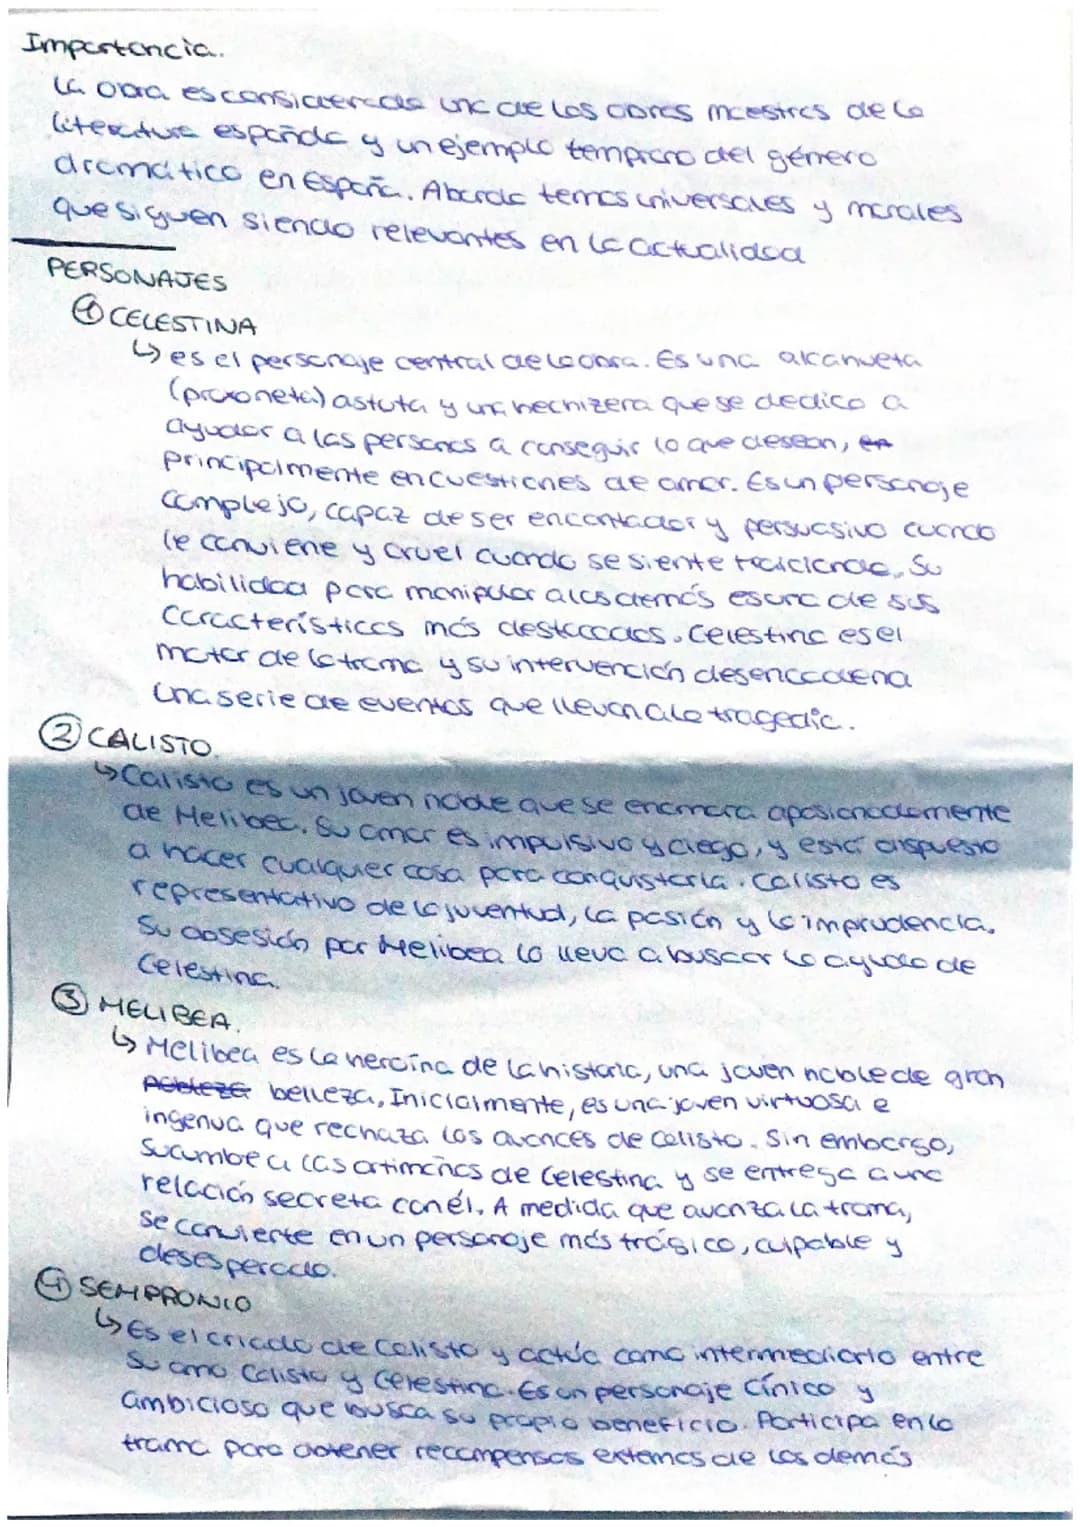 Importancia.
La obra es considerada una de las obras maestras de la
literatura española y un ejemplo temprano del género
dramático en España. Aborda temas universales y morales
que siguen siendo relevantes en la actualidad
PERSONAJES
① CELESTINA
↳ es el personaje central de la obra. Es una alcahueta
(proxoneta) astuta y una hechizera que se dedica a
ayudar a las personas a conseguir lo que desean,
principalmente en cuestiones de amor. Es un personaje
complejo, capaz de ser encantador y persuasivo cuando
le conviene y cruel cuando se siente traicionada. Su
habilidad para manipular a los demás es una de sus
características más destacadas. Celestina es el
motor de la trama y su intervención desencadena
una serie de eventos que llevan a la tragedia.
② CALISTO.
↳ Calisto es un joven noble que se enamora apasionadamente
de Melibea. Su amor es impulsivo y ciego, y está dispuesto
a hacer cualquier cosa para conquistarla. Calisto es
representativo de la juventud, la pasión y la imprudencia.
Su obsesión por Melibea lo lleva a buscar la ayuda de
Celestina.
③ MELIBEA.
↳ Melibea es la heroína de la historia, una joven noble de gran
belleza, Inicialmente, es una joven virtuosa e
ingenua que rechaza los avances de Calisto. Sin embargo,
sucumbe a las artimañas de Celestina y se entrega a una
relación secreta con él. A medida que avanza la trama,
se convierte en un personaje más trágico, culpable y
desesperado.
④ SEMPRONIO
↳ Es el criado de Calisto y actúa como intermediario entre
su amo Calisto y Celestina. Es un personaje cínico y
ambicioso que busca su propio beneficio. Participa en la
trama para obtener recompensas externas de los demás